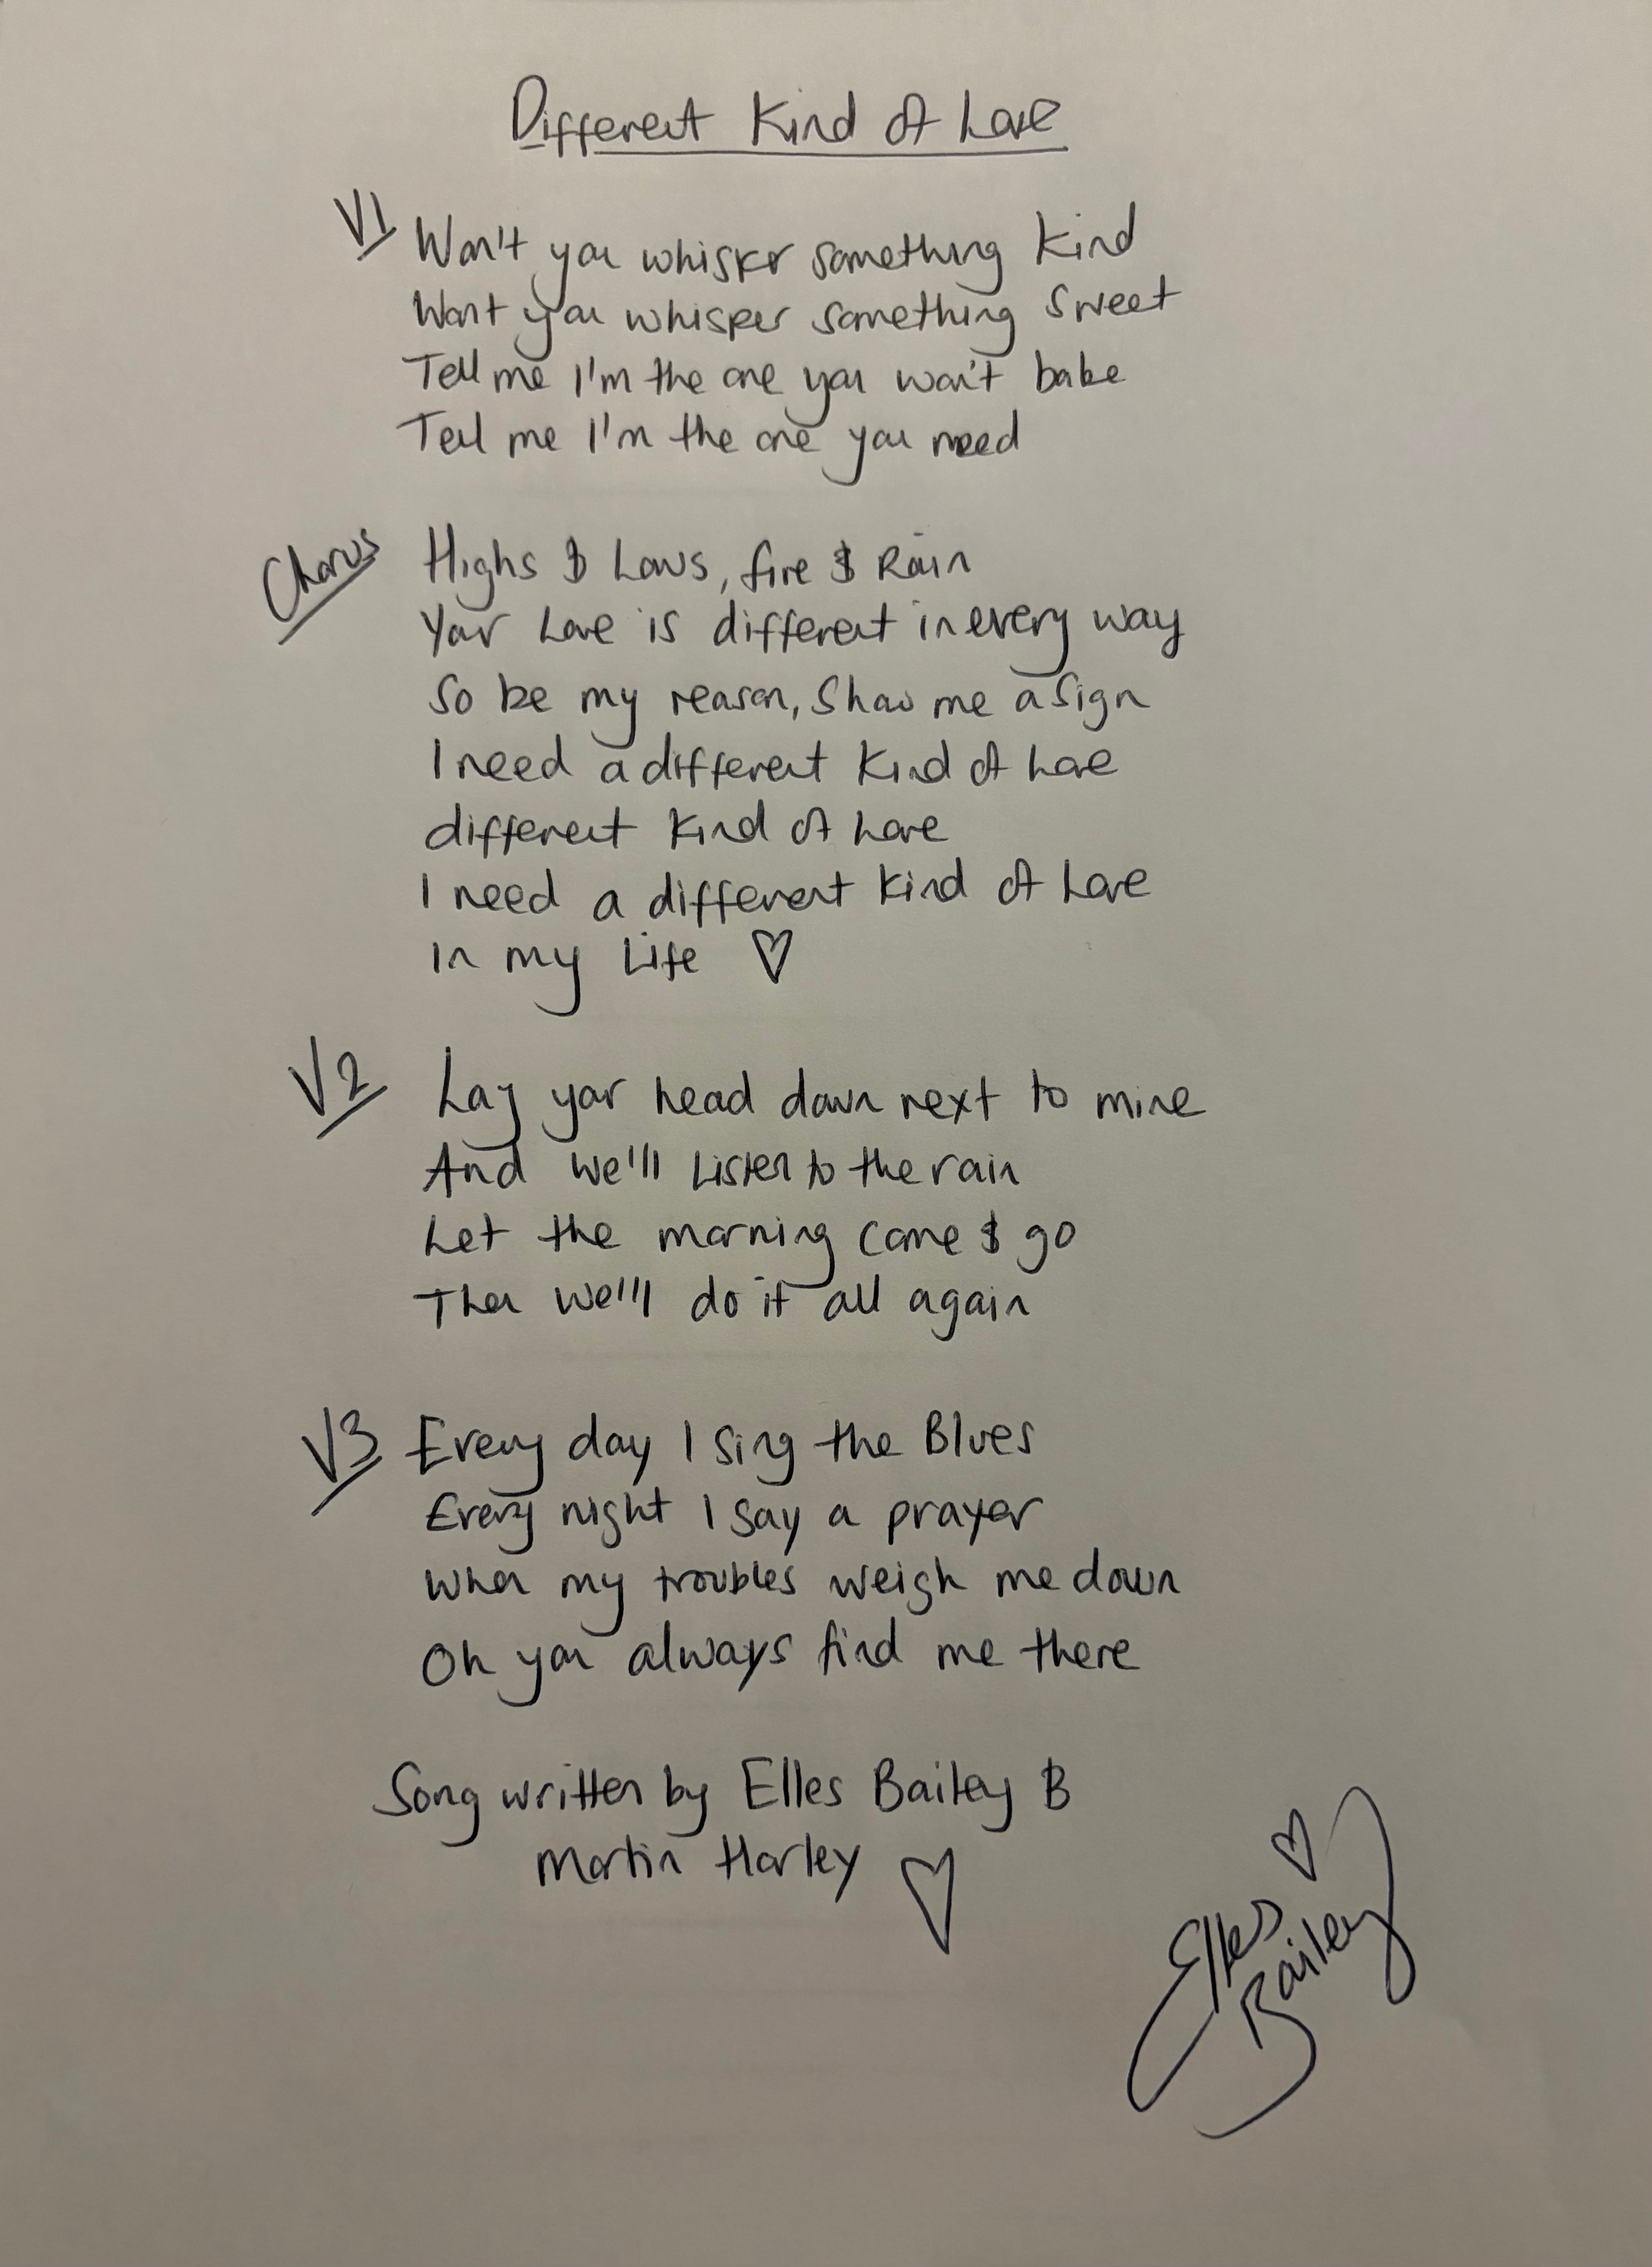 Different Kind of Love
V1 Won't you whisper something kind
Wont you whisper something sweet
Tell me I'm the one you won't babe
Tell me I'm the one you need
Chorus Highs & Lows, fire & Rain
Your Love is different in every way
So be my reason, Show me a sign
I need a different kind of Love
different kind of Love
I need a different kind of Love
In my Life ♡
V2 Lay your head down next to mine
And we'll Listen to the rain
Let the morning come & go
Then we'll do it all again
V3 Every day I sing the Blues
Every night I say a prayer
When my troubles weigh me down
Oh you always find me there
Song written by Elles Bailey &
Martin Harley ♡
♡
Elles
Bailey